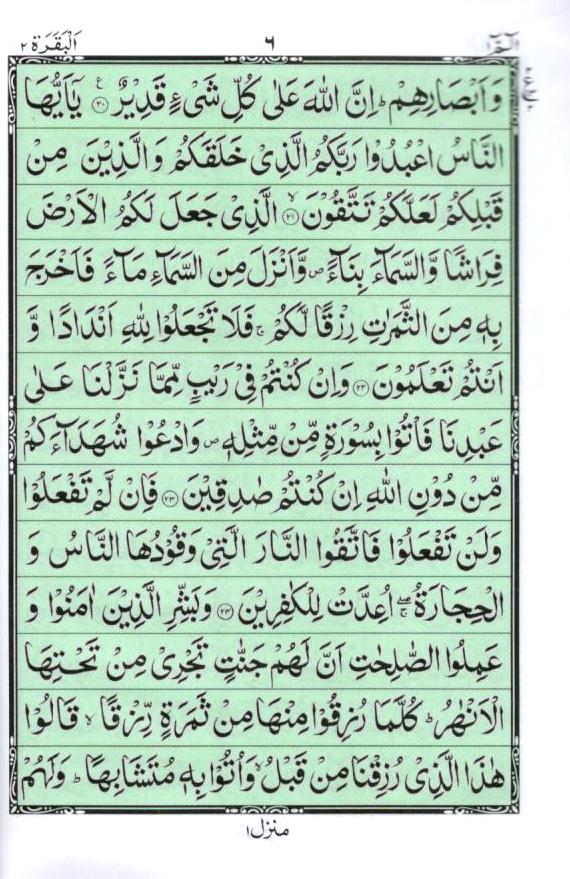 الٓمّٓ ١ ٦ اَلْبَقَرَة ٢
وَاَبْصَارِهِمْ ؕ اِنَّ اللهَ عَلٰى كُلِّ شَیْءٍ قَدِیْرٌ ﴿۲۰﴾ یٰۤاَیُّهَا
النَّاسُ اعْبُدُوْا رَبَّكُمُ الَّذِیْ خَلَقَكُمْ وَالَّذِیْنَ مِنْ
قَبْلِكُمْ لَعَلَّكُمْ تَتَّقُوْنَ ﴿۲۱﴾ ۙ الَّذِیْ جَعَلَ لَكُمُ الْاَرْضَ
فِرَاشًا وَّالسَّمَآءَ بِنَآءً ۪ وَّاَنْزَلَ مِنَ السَّمَآءِ مَآءً فَاَخْرَجَ
بِهٖ مِنَ الثَّمَرٰتِ رِزْقًا لَّكُمْ ۚ فَلَا تَجْعَلُوْا لِلّٰهِ اَنْدَادًا وَّ
اَنْتُمْ تَعْلَمُوْنَ ﴿۲۲﴾ وَاِنْ كُنْتُمْ فِیْ رَیْبٍ مِّمَّا نَزَّلْنَا عَلٰى
عَبْدِنَا فَاْتُوْا بِسُوْرَةٍ مِّنْ مِّثْلِهٖ ۪ وَادْعُوْا شُهَدَآءَكُمْ
مِّنْ دُوْنِ اللهِ اِنْ كُنْتُمْ صٰدِقِیْنَ ﴿۲۳﴾ فَاِنْ لَّمْ تَفْعَلُوْا
وَلَنْ تَفْعَلُوْا فَاتَّقُوا النَّارَ الَّتِیْ وَقُوْدُهَا النَّاسُ وَ
الْحِجَارَةُ ۖۚ اُعِدَّتْ لِلْكٰفِرِیْنَ ﴿۲۴﴾ وَبَشِّرِ الَّذِیْنَ اٰمَنُوْا وَ
عَمِلُوا الصّٰلِحٰتِ اَنَّ لَهُمْ جَنّٰتٍ تَجْرِیْ مِنْ تَحْتِهَا
الْاَنْهٰرُ ؕ كُلَّمَا رُزِقُوْا مِنْهَا مِنْ ثَمَرَةٍ رِّزْقًا ۙ قَالُوْا
هٰذَا الَّذِیْ رُزِقْنَا مِنْ قَبْلُ ۙ وَاُتُوْا بِهٖ مُتَشَابِهًا ؕ وَلَهُمْ
منزل ١